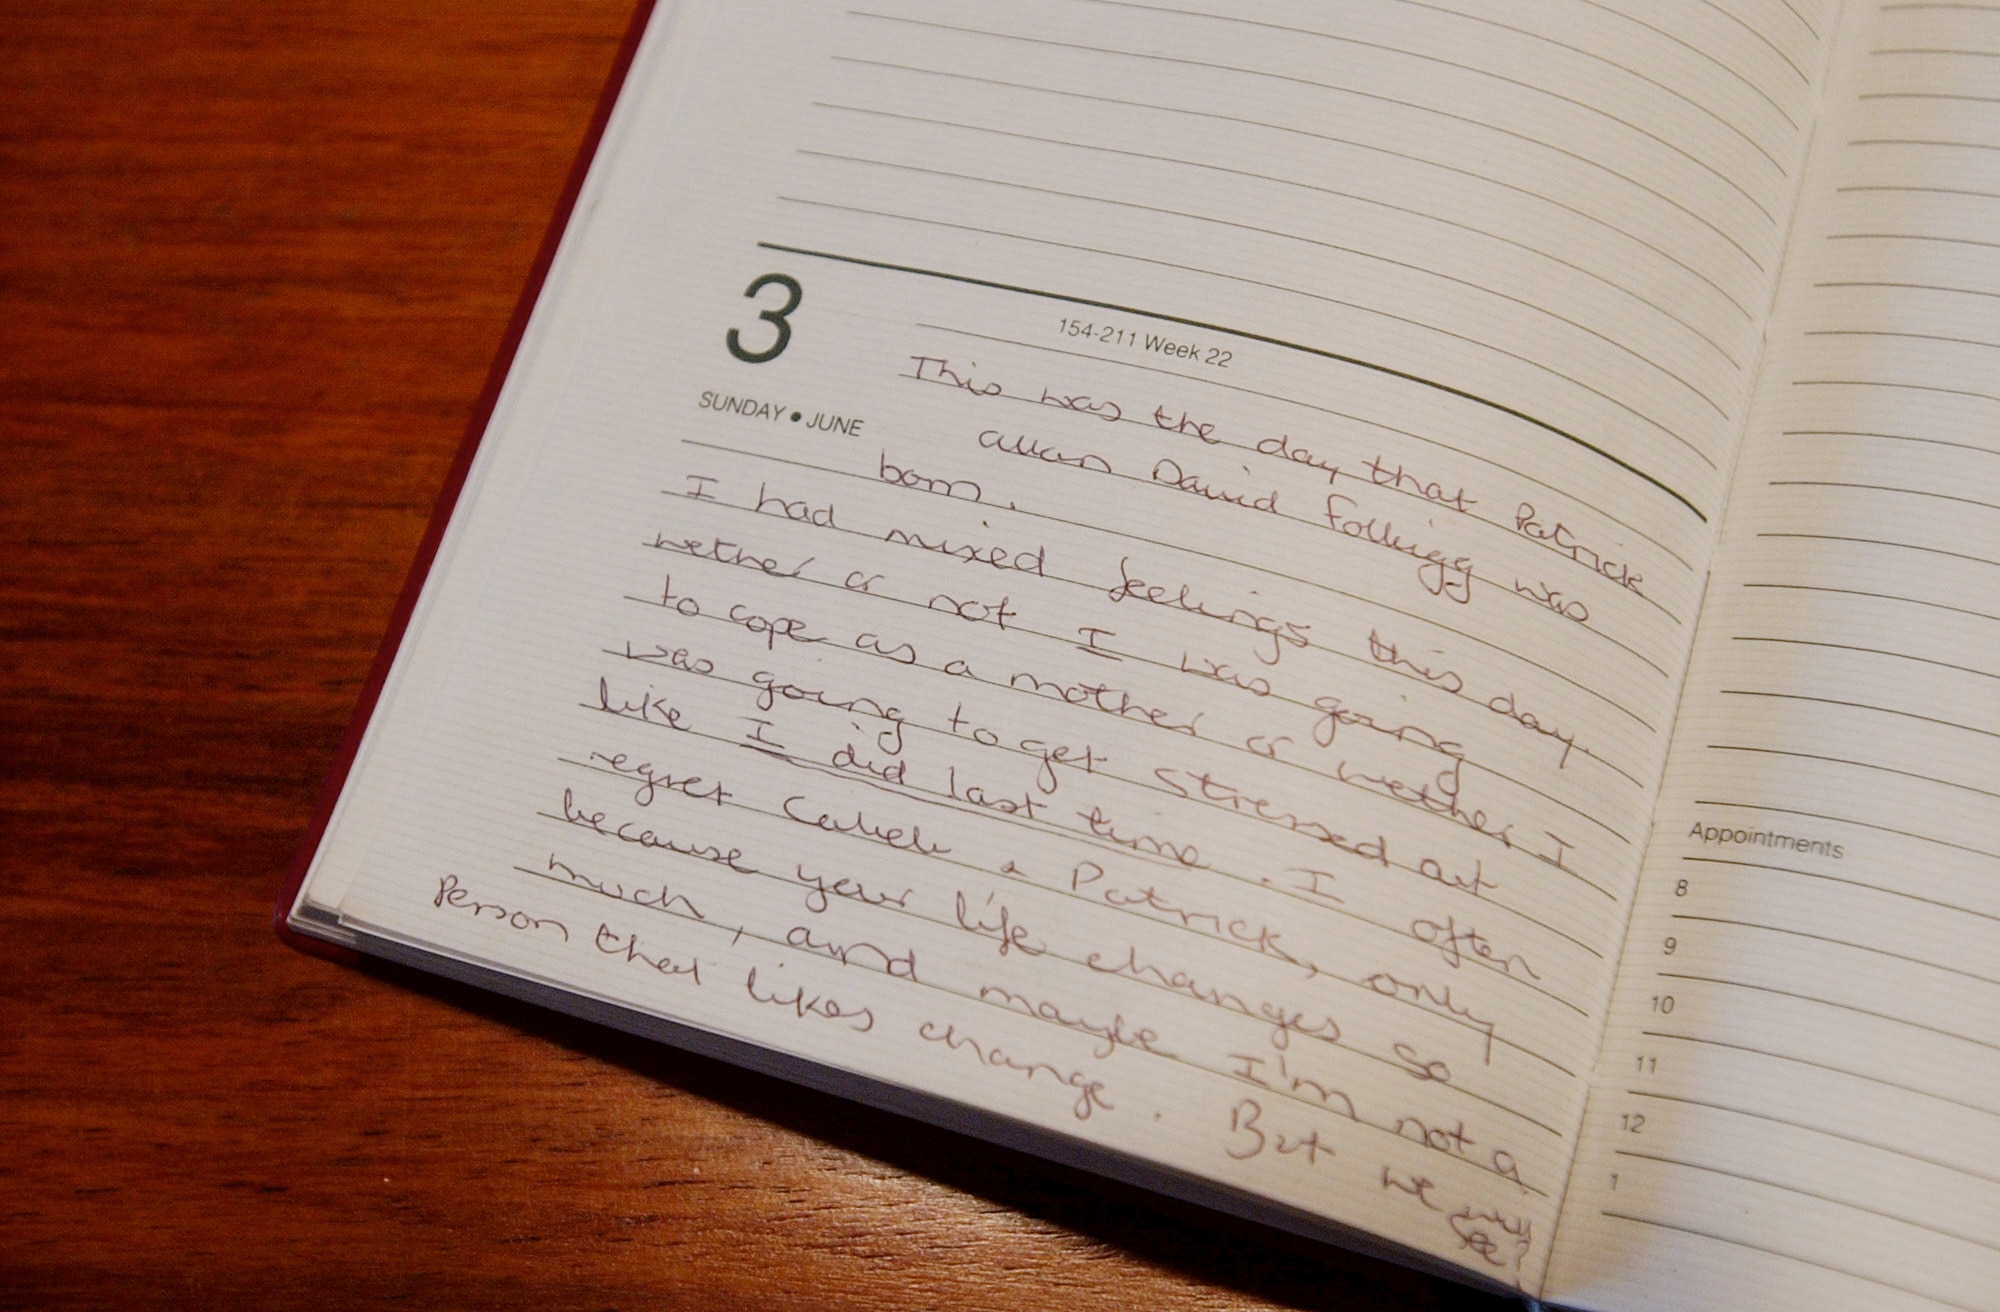 3
154-211 Week 22
SUNDAY • JUNE
This was the day that Patrick
allan David folbigg was
born.
I had mixed feelings this day.
wether or not I was going
to cope as a mother or wether I
was going to get stressed out
like I did last time. I often
regret Caleb & Patrick, only
because your life changes so
much, and maybe I'm not a
Person that likes change. But we will
see?
Appointments
8
9
10
11
12
1